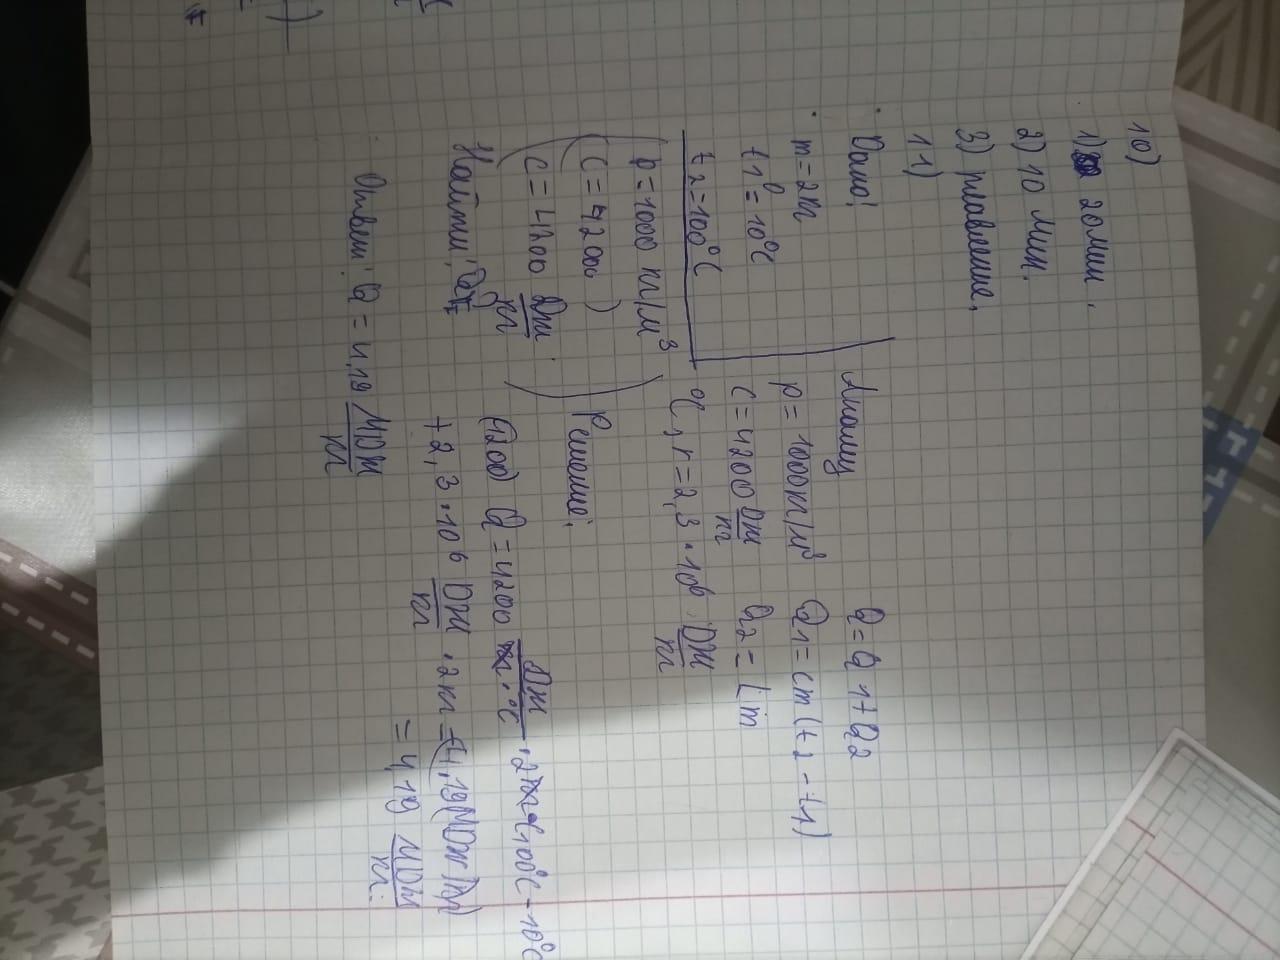 10)
1) 20 мин.
2) 10 мин.
3) плавление.
11)
Дано:
m = 2кг
t1° = 10°C
t2 = 100°C
(ρ = 1000 кг/м³
(c = 42000 )
(c = 4200 Дж/кг
Найти:
Решение:
ρ = 1000 кг/м³
c = 4200 Дж/кг
°C, r = 2,3 · 10⁶ Дж/кг
Q = Q1 + Q2
Q1 = cm (t2 - t1)
Q2 = Lm
Q = 4200 Дж/кг·°C · 2кг · (100°C - 10°C
+ 2,3 · 10⁶ Дж/кг · 2кг =
= 4,19 МДж/кг.
Ответ: Q = 4,19 МДж/кг